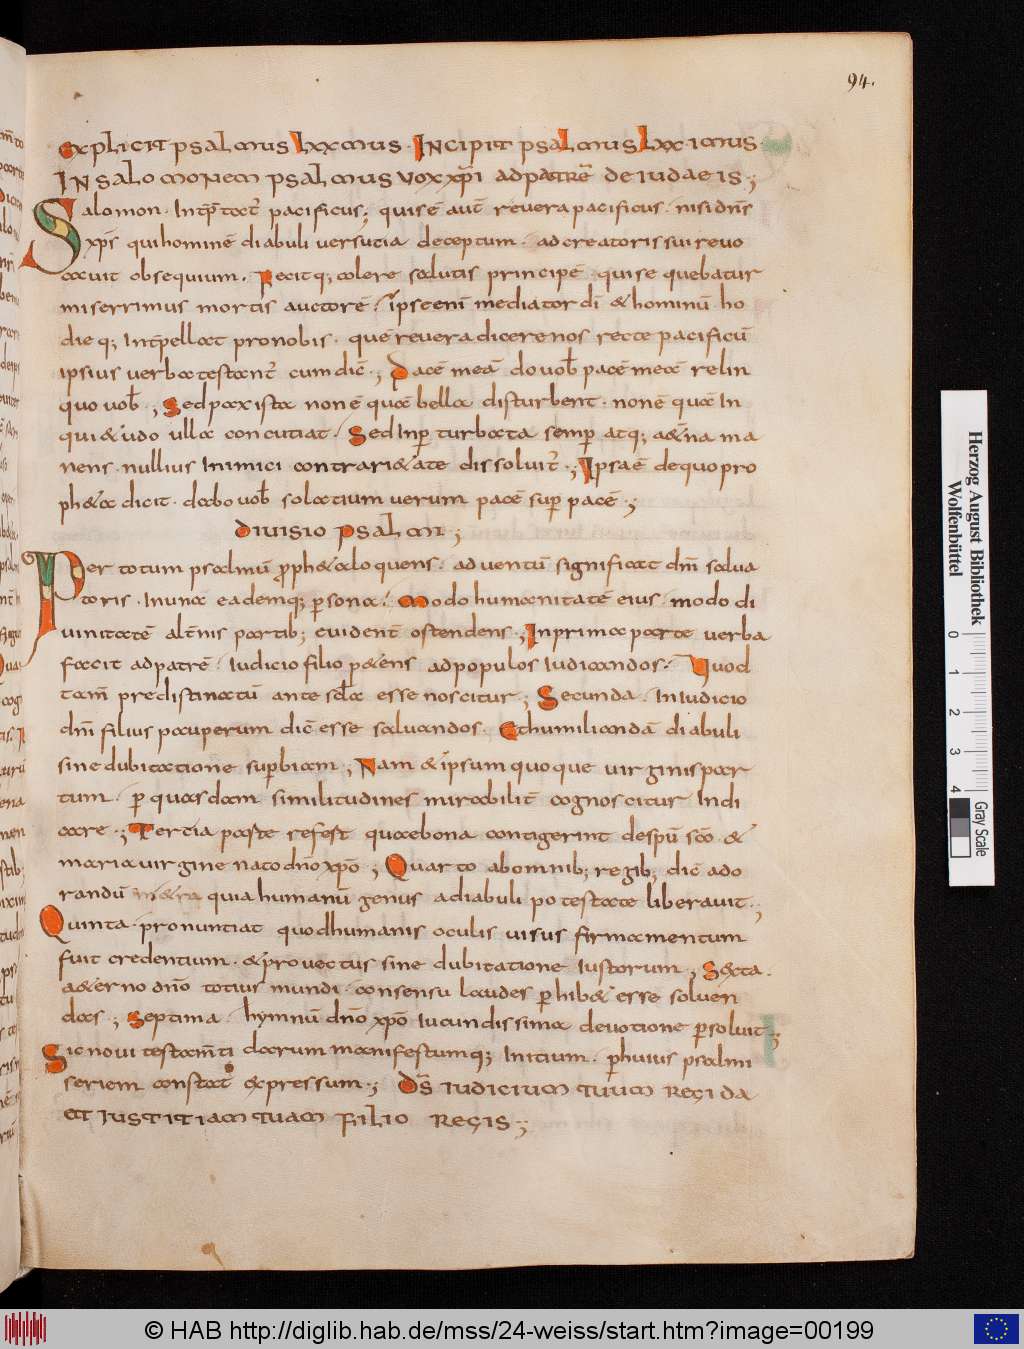 94.
Explicit psalmus Lxxmus. Incipit psalmus Lxx.imus.
IN salomonem psalmus vox xp̄i ad patrē de iudaeis.;
Salomon. Intp̄taet̄ pacificus; quis ē aut̄ revera pacificus. nisi dn̄s
xps̄ qui hominē diabuli versutia deceptum. ad creatoris sui revo
cavit obsequium. Fecitq; colere salutis principē. qui sequebatur
miserrimus mortis auctorē. ipse eni mediator dī & hominū ho
die q; Intp̄ellat pro nobis. quē revera dicere nos recte pacificū
ipsius verba testant̄ cum dic̄.; Pacē meā do vob̄ pacē meā relin
quo vob̄.; Sed pax ista non ē quā bella disturbent. non ē quā In
qui&udo ulla concutiat. Sed Inp̄turbata semp̄ atq; a&na ma
nens. nullius Inimici contrari&ate dissoluit̄.; Ipsa ē de quo pro
ph&a dicit. dabo vob̄ solatium verum pacē sup̄ pacē.;
Divisio psalmi;
Per totum psalmū proph&a loquens. adventū significat dn̄i salva
toris. In una eademq; p̄sona. Modo humanitatē eius. modo di
vinitatē alt̄nis partib; evident̄ ostendens.; In prima parte verba
facit ad patrē. Iudicio filio p&ens ad populos Iudicandos. Quod
tam̄ predistinatū ante scl̄a esse noscitur; Secunda. In Iudicio
dn̄i filius pauperum dic̄ esse salvandos. Et humiliandā diabuli
sine dubitatione sup̄biam; Nam & ipsum quoque virginis par
tum. p̄ quasdam similitudines mirabilit̄ cognoscitur Indi
care.; Tertia parte refest quae bona contigerint despū sc̄o &
maria virgine nato dn̄o xp̄o.; Quarto ab omnib; regib; dic̄ ado
randū quia humanū genus a diabuli potestate liberavit.;
Quinta. pronuntiat quod humanis oculis visus firmamentum
fuit credentium. & provectus sine dubitatione Iustorum; Sexta.
a&erno dn̄o totius mundi. consensu laudes p̄hib& esse solven
das.; Septima. hymnū dn̄o xp̄o Iucundissima devotione p̄soluit;
Sic novi testam̄ti daerum manifestumq; Initium. p̄ huius psalmi
seriem constat expressum.; Ds̄ iudicium tuum regi da
et iustitiam tuam filio regis.;
Herzog August Bibliothek
Wolfenbüttel
0 1 2 3 4
Gray Scale
© HAB http://diglib.hab.de/mss/24-weiss/start.htm?image=00199